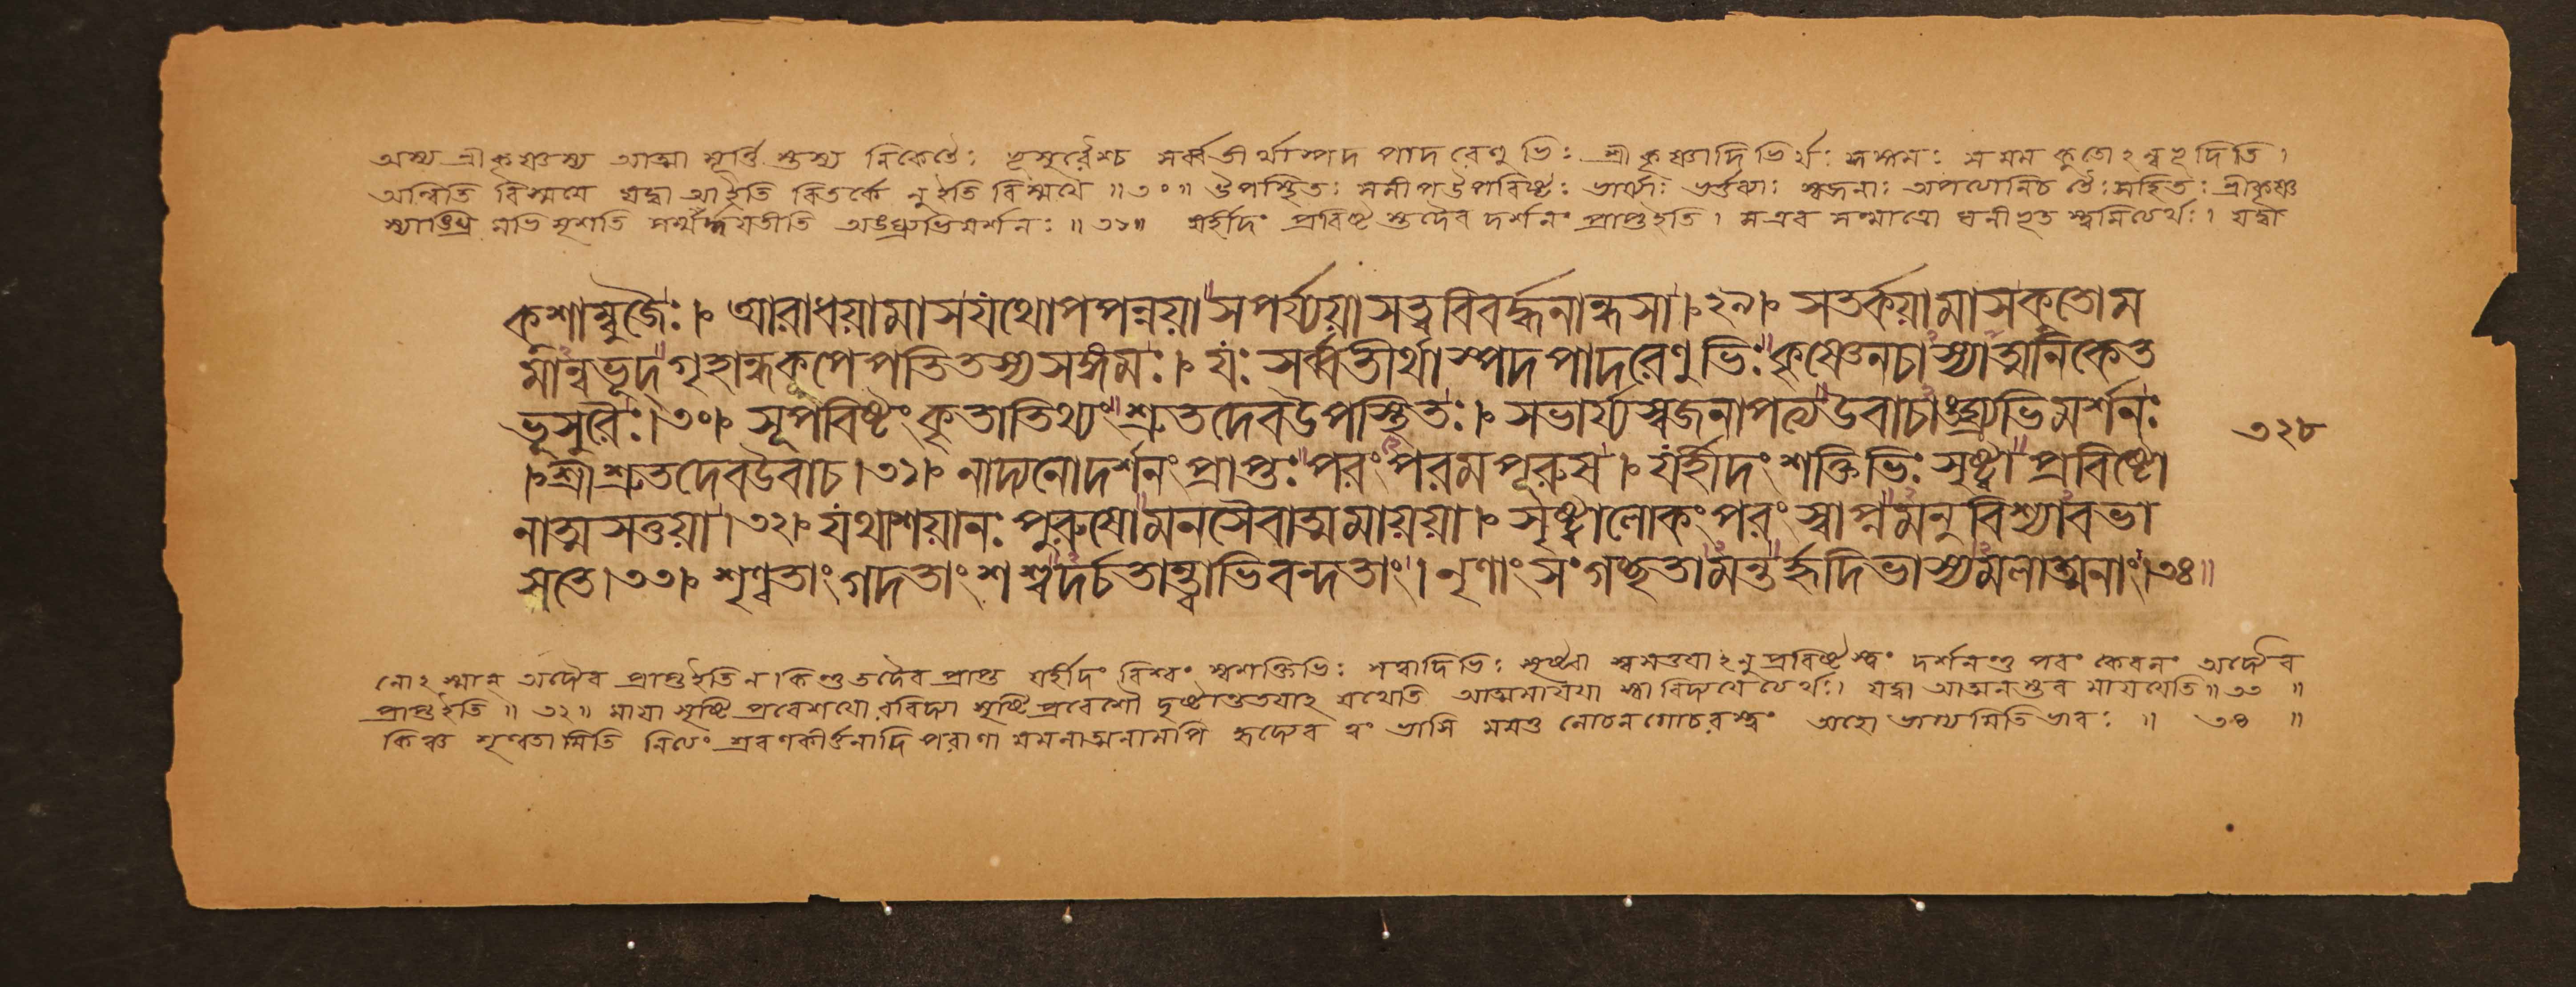 অস্য শ্রীকৃষ্ণস্য আত্মা মূর্ত্তি স্তস্য নিকেতৈঃ ভূসুরৈশ্চ সর্ব্বতীর্থাস্পদ পাদরেণুভিঃ শ্রীকৃষ্ণাদিভির্যঃ সঙ্গমঃ স মম কুতোঽন্বভূদিতি।
অন্বিতি বিস্ময়ে যদ্বা আইতি বিতর্কে নুইতি বিস্ময়ে॥৩০॥ উপস্থিতঃ সমীপউপবিষ্টঃ ভার্য্যাঃ স্বজনাঃ অপত্যানিচ তৈঃসহিতঃ শ্রীকৃষ্ণ
স্যাঙ্ঘ্রি মভিমৃশতি সম্মর্দ্দয়তীতি অঙ্ঘ্র্যভিমর্শনঃ॥৩১॥ যর্হীদং প্রবিষ্ট স্তদৈব দর্শনং প্রাপ্তইতি। যদ্বা
কশাম্বুজৈঃ।৮ আরাধয়ামাসযথোপপন্নয়াসপর্য্যয়াসত্ত্ববিবর্দ্ধনান্ধসা।২৯। সতর্কয়ামাসকুতোম
মান্বভূদ্গৃহান্ধকূপেপতিতস্যসঙ্গমঃ। যঃ সর্ব্বতীর্থাস্পদপাদরেণুভিঃকৃষ্ণেনচাস্যাত্মনিকেত
ভূসুরৈঃ।৩০। সূপবিষ্টংকৃতাতিথ্যংশ্রুতদেবউপস্থিতঃ। সভার্য্যস্বজনাপত্যউবাচাঙ্ঘ্র্যভিমর্শনঃ
৩২৮
।শ্রীশ্রুতদেবউবাচ।৩১। নাদ্যনোদর্শনংপ্রাপ্তঃপরংপরমপূরুষ। যর্হীদংশক্তিভিঃ সৃষ্ট্বা প্রবিষ্টো
নাত্মসত্তয়া।৩২। যথাশয়ানঃ পুরুষোমনসৈবাত্মমায়য়া। সৃষ্ট্বালোকংপরং স্বাপ্নমনুবিশ্যাবভা
সতে।৩৩। শৃণ্বতাংগদতাংশশ্বদর্চতান্ত্বাভিবন্দতাং। নৃণাংসংগচ্ছতামন্তর্হৃদিভাস্যমলাত্মনাং।৩৪॥
নোঽস্মান্ অদ্যৈব প্রাপ্তইতিন।কিন্তুতদৈব প্রাপ্ত যর্হীদং বিশ্বং স্বশক্তিভিঃ সত্বাদিভিঃ সৃষ্ট্বা স্বসত্তয়াঽনুপ্রবিষ্টস্ত্বং দর্শনন্তু পরং কেবলং অদ্যৈব
প্রাপ্তইতি॥৩২॥ মায়া সৃষ্টি প্রবেশয়ো সৃষ্টিপ্রবেশৌ দৃষ্টান্তত যাহ যথেতি আত্মমায়য়া যদ্বা আত্মনস্তব মায়য়েতি॥৩৩॥
কিঞ্চ শৃণ্বতামিতি নিত্যং শ্রবণকীর্ত্তনাদি পরাণা মমলাত্মনামপি হৃদ্যেব ত্বং ভাসি মমতু লোচনগোচরস্ত্বং অহো ভাগ্যমিতিভাবঃ॥ ৩৪॥